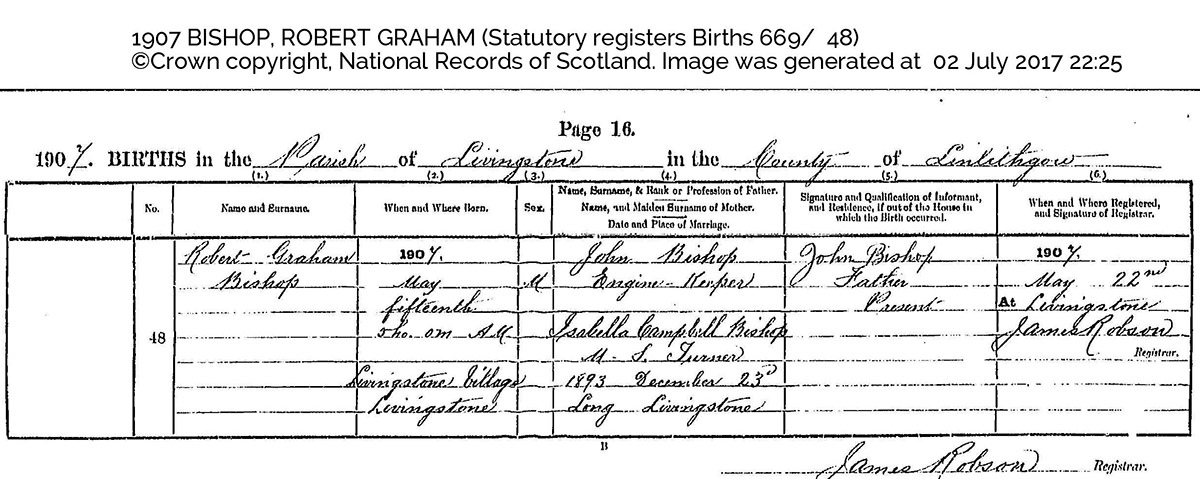 1907 BISHOP, ROBERT GRAHAM (Statutory registers Births 669/ 48)
©Crown copyright, National Records of Scotland. Image was generated at 02 July 2017 22:25
Page 16.
1907. BIRTHS in the Parish of Livingstone in the County of Linlithgow
(1.) (2.) (3.) (4.) (5.) (6.)
No.
Name and Surname.
When and Where Born.
Sex.
Name, Surname, & Rank or Profession of Father.
Name, and Maiden Surname of Mother.
Date and Place of Marriage.
Signature and Qualification of Informant,
and Residence, if out of the House in
which the Birth occurred.
When and Where Registered,
and Signature of Registrar.
48
Robert Graham
Bishop
1907.
May
fifteenth
5 ho. 0 m A.M.
Livingstone Village
Livingstone
M
John Bishop
Engine-Keeper
Isabella Campbell Bishop
M. S. Turner
1893 December 23d
Long Livingstone
John Bishop
Father
Present
1907.
May 22nd
At Livingstone
James Robson
Registrar.
B
James Robson Registrar.